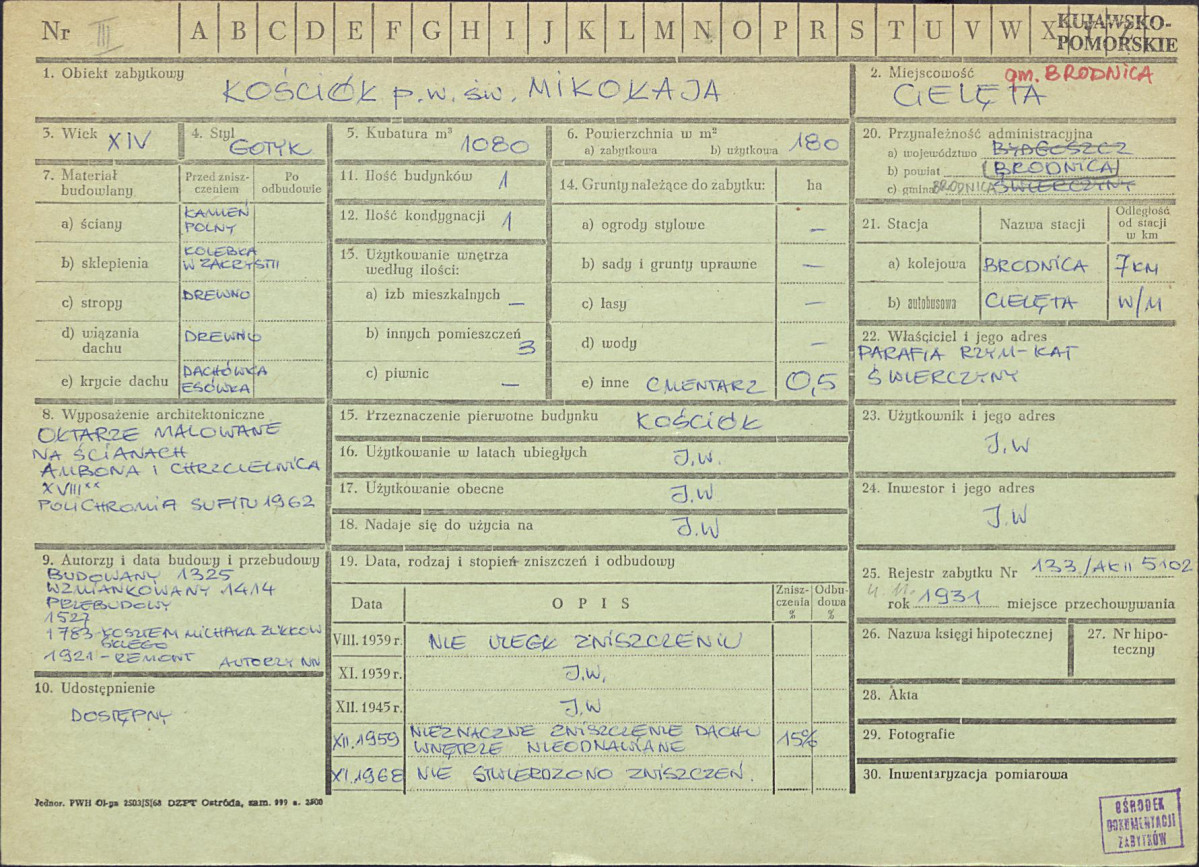 Nr III A B C D E F G H I J K L M N O P R S T U V W X Y Z
KUJAWSKO-
POMORSKIE
1. Obiekt zabytkowy
KOŚCIÓŁ p.w. św. MIKOŁAJA
2. Miejscowość gm. BRODNICA
CIELĘTA
3. Wiek XIV
4. Styl
GOTYK
5. Kubatura m³
1080
6. Powierzchnia w m²
a) zabytkowa b) użytkowa 180
7. Materiał
budowlany
Przed znisz-
czeniem
Po
odbudowie
a) ściany KAMIEŃ
POLNY
b) sklepienia KOLEBKA
W ZAKRYSTII
c) stropy DREWNO
d) wiązania
dachu DREWNO
e) krycie dachu DACHÓWKA
ESÓWKA
8. Wyposażenie architektoniczne
OŁTARZE MALOWANE
NA ŚCIANACH
AMBONA I CHRZCIELNICA
XVIII
POLICHROMIA SUFITU 1962
9. Autorzy i data budowy i przebudowy
BUDOWANY 1325
WZMIANKOWANY 1414
PRZEBUDOWY
1527
1783-KOSZTEM MICHAŁA
SKIEGO
1921 - REMONT AUTORZY NN
10. Udostępnienie
DOSTĘPNY
11. Ilość budynków 1
12. Ilość kondygnacji 1
13. Użytkowanie wnętrza
według ilości:
a) izb mieszkalnych —
b) innych pomieszczeń
3
c) piwnic —
14. Grunty należące do zabytku: ha
a) ogrody stylowe —
b) sady i grunty uprawne —
c) lasy —
d) wody —
e) inne CMENTARZ 0,5
15. Przeznaczenie pierwotne budynku KOŚCIÓŁ
16. Użytkowanie w latach ubiegłych J.W.
17. Użytkowanie obecne J.W
18. Nadaje się do użycia na J.W
19. Data, rodzaj i stopień zniszczeń i odbudowy
Data OPIS Znisz-
czenia
% Odbu-
dowa
%
VIII. 1939 r. NIE ULEGŁ ZNISZCZENIU
XI. 1939 r. J.W.
XII. 1945 r. J.W
XII.1959 NIEZNACZNE ZNISZCZENIE DACHU
WNĘTRZE NIEODNAWIANE 15%
XI.1968 NIE STWIERDZONO ZNISZCZEŃ.
20. Przynależność administracyjna
a) województwo BYDGOSZCZ
b) powiat BRODNICA
c) gmina BRODNICA ŚWIERCZYNY
21. Stacja Nazwa stacji Odległość
od stacji
w km
a) kolejowa BRODNICA 7 KM
b) autobusowa CIELĘTA W/M
22. Właściciel i jego adres
PARAFIA RZYM-KAT
ŚWIERCZYNY
23. Użytkownik i jego adres
J.W
24. Inwestor i jego adres
J.W
25. Rejestr zabytku Nr 133/AKII 5102
rok 1931 miejsce przechowywania
26. Nazwa księgi hipotecznej
27. Nr hipo-
teczny
28. Akta
29. Fotografie
30. Inwentaryzacja pomiarowa
Jednor. PWH Ol-pz 2503/S/68 DZPT Ostróda, zam. 999 n. 2500
OŚRODEK
DOKUMENTACJI
ZABYTKÓW